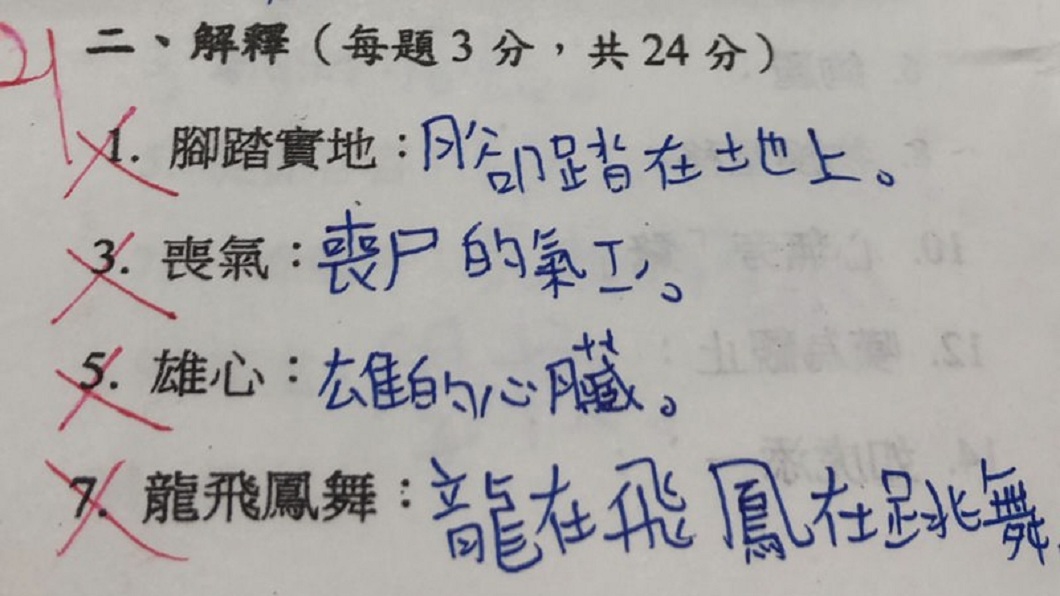 二、解釋（每題3分，共24分）
1. 腳踏實地：腳踏在土地上。
3. 喪氣：喪尸的氣工。
5. 雄心：雄的心臟。
7. 龍飛鳳舞：龍在飛鳳在跳舞.